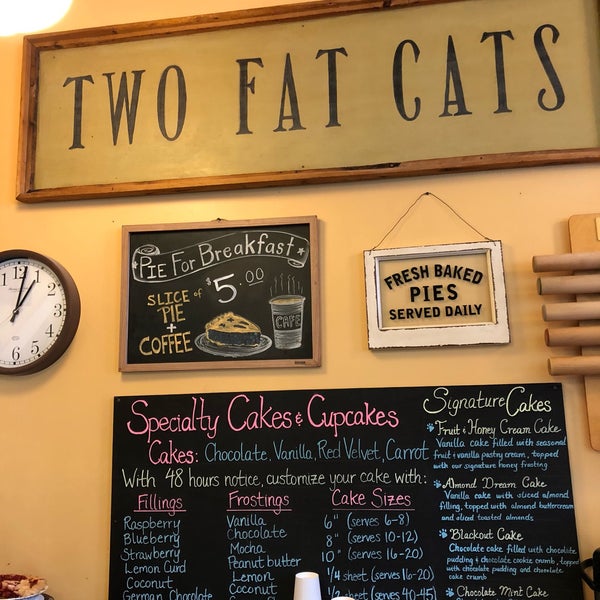 TWO FAT CATS
PIE FOR BREAKFAST
SLICE of $5.00
PIE
+
COFFEE
CAFE
FRESH BAKED
PIES
SERVED DAILY
Specialty Cakes & Cupcakes
Cakes: Chocolate, Vanilla, Red Velvet, Carrot
With 48 hours notice, customize your cake with:
Fillings
Raspberry
Blueberry
Strawberry
Lemon Curd
Coconut
German Chocolate
Frostings
Vanilla
Chocolate
Mocha
Peanut butter
Lemon
Coconut
Cake Sizes
6" (serves 6-8)
8" (serves 10-12)
10" (serves 16-20)
1/4 sheet (serves 16-20)
1/2 sheet (serves 40-45)
Signature Cakes
Fruit & Honey Cream Cake
Vanilla cake filled with seasonal
fruit & vanilla pastry cream, topped
with our signature honey frosting
Almond Dream Cake
Vanilla cake with sliced almond
filling, topped with almond buttercream
and sliced toasted almonds
Blackout Cake
Chocolate cake filled with chocolate
pudding & chocolate cookie crumb, topped
with chocolate pudding and chocolate
cake crumb
Chocolate Mint Cake